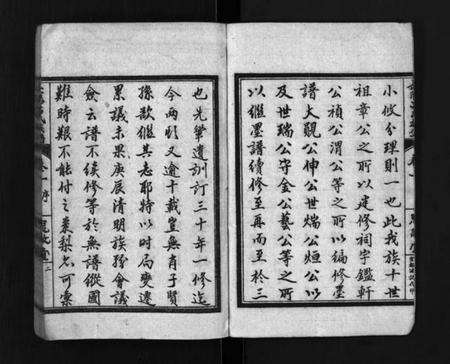 小攸分理則一也此我族十世
祖章公之所以建修祠宇鑑軒
公禎公渭公等之所以編修墨
譜大觀公伸公世煓公烜公以
及世瑞公守金公藝公等之所
以繼墨譜續修至再而至於三
也先輩遺訓訂三十年一修迄
今兩
又逾十載豈無肖子賢
孫歟繼其志耶特以時局變遷
累議未果庚辰清明族孫會議
僉云譜不續修等於無譜縱國
難時艱不能付之棗梨亦可稟
卷一 序